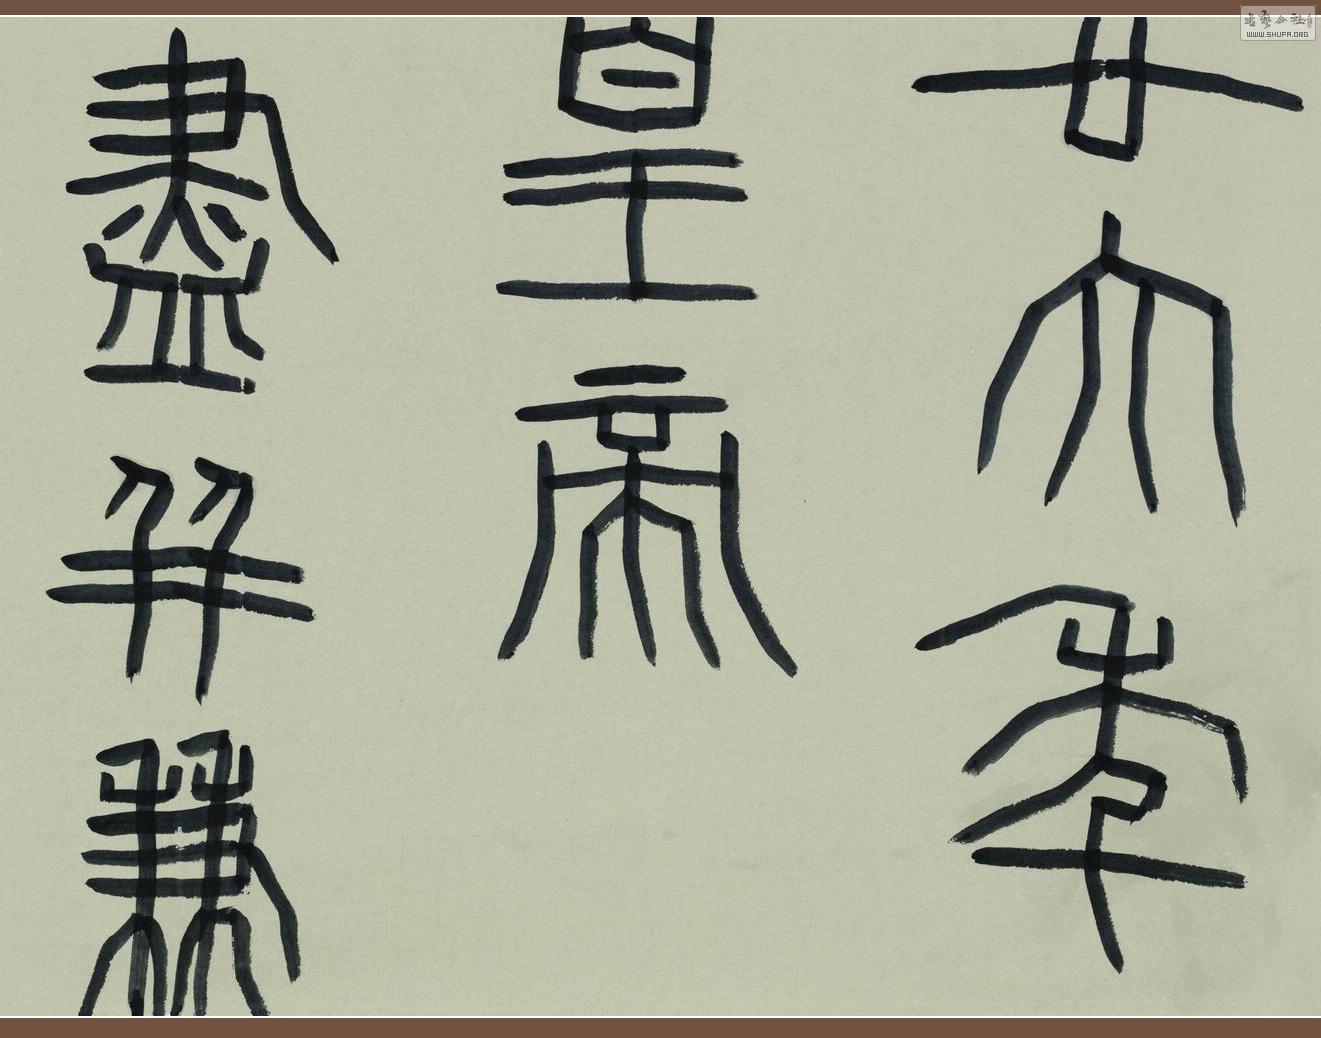 廿六年
皇帝
盡并兼
書藝公社
WWW.SHUFA.ORG